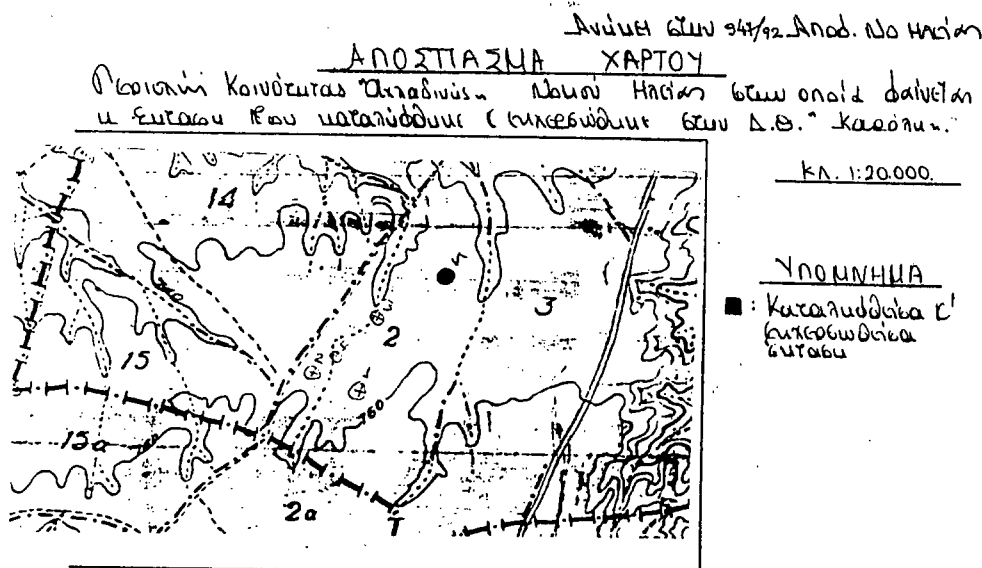 Ανήκει στην 947/92 Αποφ. Νο Ηλείας
ΑΠΟΣΠΑΣΜΑ ΧΑΡΤΟΥ
Περιοχής Κοινότητας Νομού Ηλείας στην οποία φαίνεται
η έκταση που καταλήφθηκε στην Δ.Θ. "
ΚΛ. 1:20.000.
ΥΠΟΜΝΗΜΑ
: Καταληφθείσα
εκχερσωθείσα
έκταση
14
4
3
3
2
740
2
15
1
760
15α
2α
T